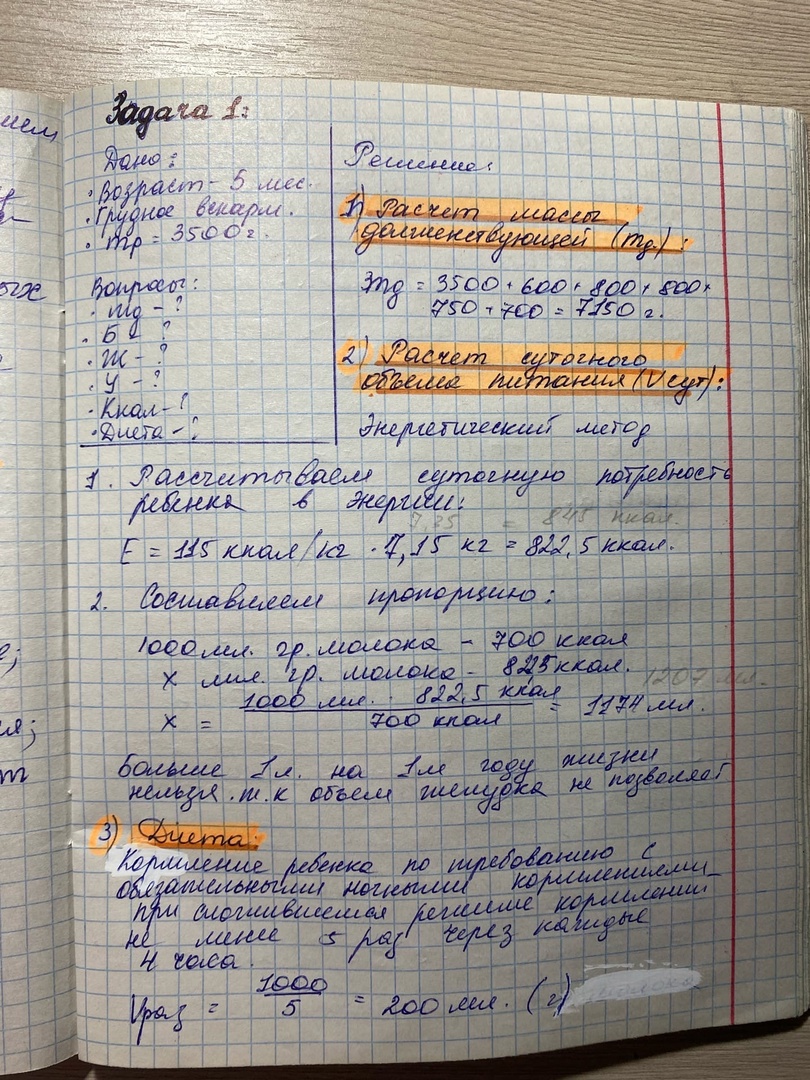 Задача 1:
Дано:
• Возраст - 5 мес.
• Грудное вскарм.
• mр = 3500 г.
Вопросы:
• mд - ?
• Б - ?
• Ж - ?
• У - ?
• Ккал - ?
• Диета - ?
Решение:
1) Расчет массы
долженствующей (mд):
mд = 3500 + 600 + 800 + 800 +
750 + 700 = 7150 г.
2) Расчет суточного
объема питания (Vсут):
Энергетический метод
1. Рассчитываем суточную потребность
ребенка в энергии:
7,35 = 845 ккал.
E = 115 ккал/кг · 7,15 кг = 822,5 ккал.
2. Составляем пропорцию:
1000 мл. гр. молока - 700 ккал
x мл. гр. молока - ккал.
1207 мл.
x = 1000 мл. · 822,5 ккал / 700 ккал = 1174 мл.
Больше 1 л. на 1м году жизни
нельзя. т.к объем желудка не позволяет
3) Диета.
Кормление ребенка по требованию с
обязательными ночными кормлениями
при сложившемся режиме кормлений
не менее 5 раз через каждые
4 часа.
Vраз = 1000 / 5 = 200 мл. (г)